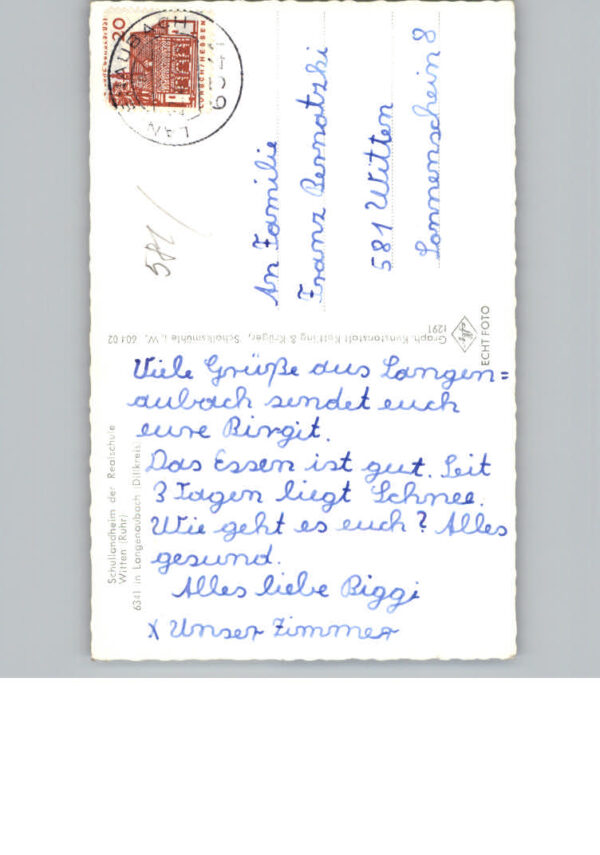 Viele Grüße aus Langen=
aubach sendet euch
eure Birgit.
Das Essen ist gut. Seit
3 Tagen liegt Schnee.
Wie geht es euch? Alles
gesund.
Alles liebe Biggi
x Unser Zimmer
An Familie
Franz Bernatzki
581 Witten
Sonnenschein 8
581/
20
LORSCH/HESSEN
6341
Schullandheim der Realschule
Witten (Ruhr)
6341 in Langenaubach (Dillkreis)
Graph. Kunstanstalt Kettling & Krüger, Schalksmühle i. W. 604 02
1291
ECHT FOTO